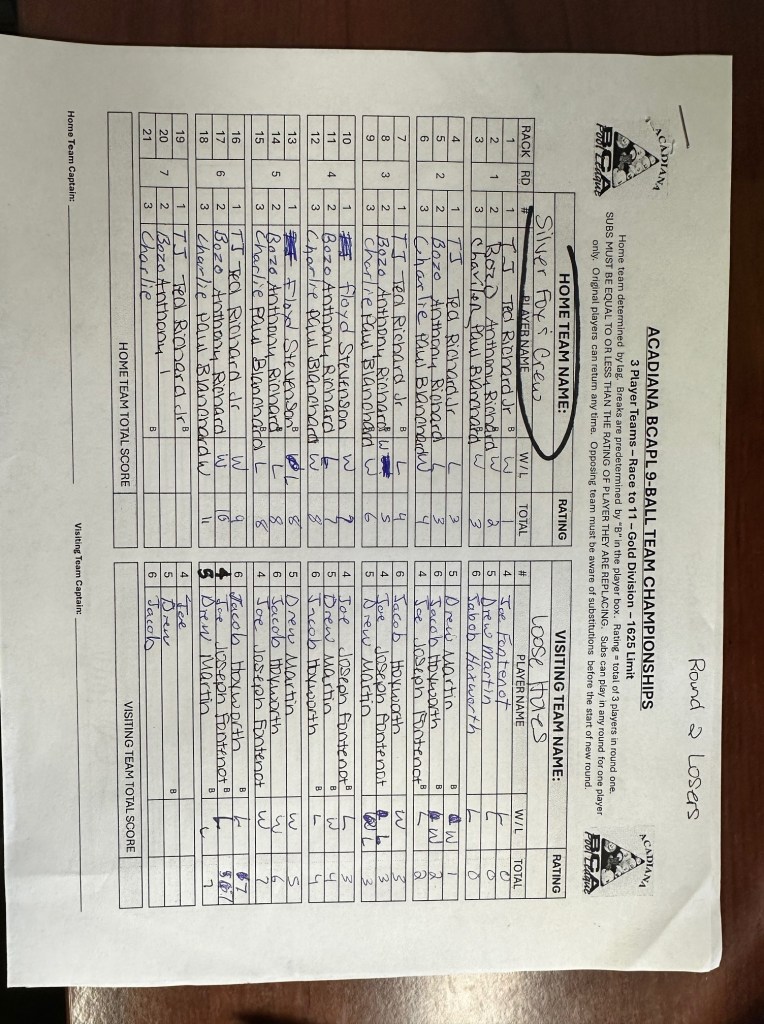 Round 2 Losers
ACADIANA
BCA
Pool League
ACADIANA BCAPL 9-BALL TEAM CHAMPIONSHIPS
3 Player Teams – Race to 11 – Gold Division - 1625 Limit
Home team determined by lag. Breaks are predetermined by "B" in the player box. Rating = total of 3 players in round one.
SUBS MUST BE EQUAL TO OR LESS THAN THE RATING OF PLAYER THEY ARE REPLACING. Subs can play in any round for one player
only. Original players can return any time. Opposing team must be aware of substitutions before the start of new round.
ACADIANA
BCA
Pool League
HOME TEAM NAME: RATING VISITING TEAM NAME: RATING
Silver Fox's Crew Loose Hars
RACK RD # PLAYER NAME W/L TOTAL # PLAYER NAME W/L TOTAL
1 1 TJ Ted Richard Jr B W 1 4 Joe Fontenot L 0
2 1 2 Bozo Anthony Richard W 2 5 Drew Martin L 0
3 3 Charlie Paul Blanchard W 3 6 Jabob Haxworth L 0
4 1 TJ Ted Richard Jr L 3 5 Drew Martin B W 1
5 2 2 Bozo Anthony Richard L 3 6 Jacob Hayworth B W 2
6 3 Charlie Paul Blanchard W 4 4 Joe Joseph Fontenot B L 2
7 1 TJ Ted Richard Jr B L 4 6 Jacob Hayworth W 3
8 3 2 Bozo Anthony Richard B W 5 4 Joe Joseph Fontenot L 3
9 3 Charlie Paul Blanchard B W 6 5 Drew Martin L 3
10 1 Floyd Stevenson W 7 4 Joe Joseph Fontenot B L 3
11 4 2 Bozo Anthony Richard L 7 5 Drew Martin B W 4
12 3 Charlie Paul Blanchard W 8 6 Jacob Hayworth B L 4
13 1 Floyd Stevenson B L 8 5 Drew Martin W 5
14 5 2 Bozo Anthony Richard B L 8 6 Jacob Hayworth W 6
15 3 Charlie Paul Blanchard B L 8 4 Joe Joseph Fontenot W 7
16 1 TJ Ted Richard Jr W 9 6 Jacob Hayworth B L 7
17 6 2 Bozo Anthony Richard W 10 4 Joe Joseph Fontenot B L 7
18 3 Charlie Paul Blanchard W 11 5 Drew Martin B L 7
19 1 TJ Ted Richard Jr B 4 Joe
20 7 2 Bozo Anthony 5 Drew B
21 3 Charlie B 6 Jacob
HOME TEAM TOTAL SCORE VISITING TEAM TOTAL SCORE
Home Team Captain: Visiting Team Captain: